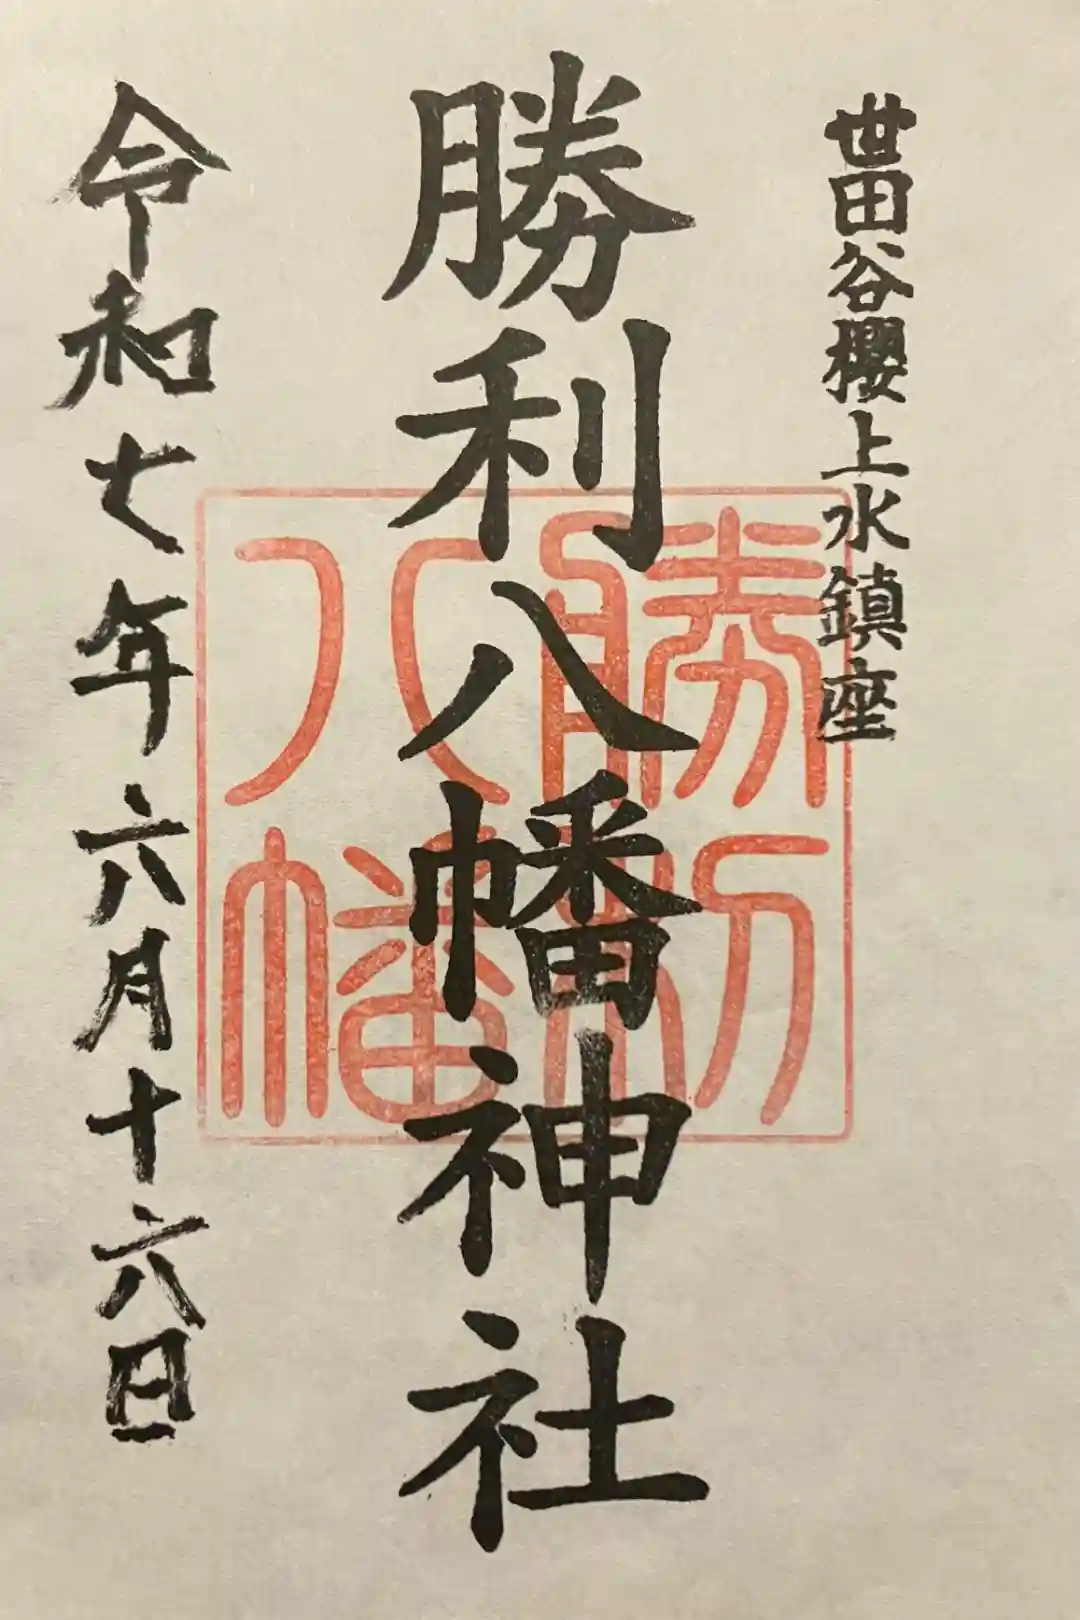 世田谷櫻上水鎮座
勝利八幡神社
勝利
八幡
令和七年六月十六日